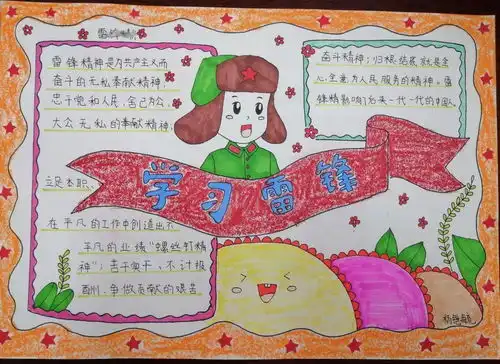 雷锋精神
雷锋精神是为共产主义而
奋斗的无私奉献精神;
忠于党和人民,舍己为公、
大公无私的奉献精神;
立足本职、
在平凡的工作中创造出不
平凡的业绩“螺丝钉精
神”;苦干实干、不计报
酬、争做贡献的艰苦
奋斗精神;归根结底就是全
心全意为人民服务的精神。雷
锋精神影响了后来一代一代的中国人
学习雷锋